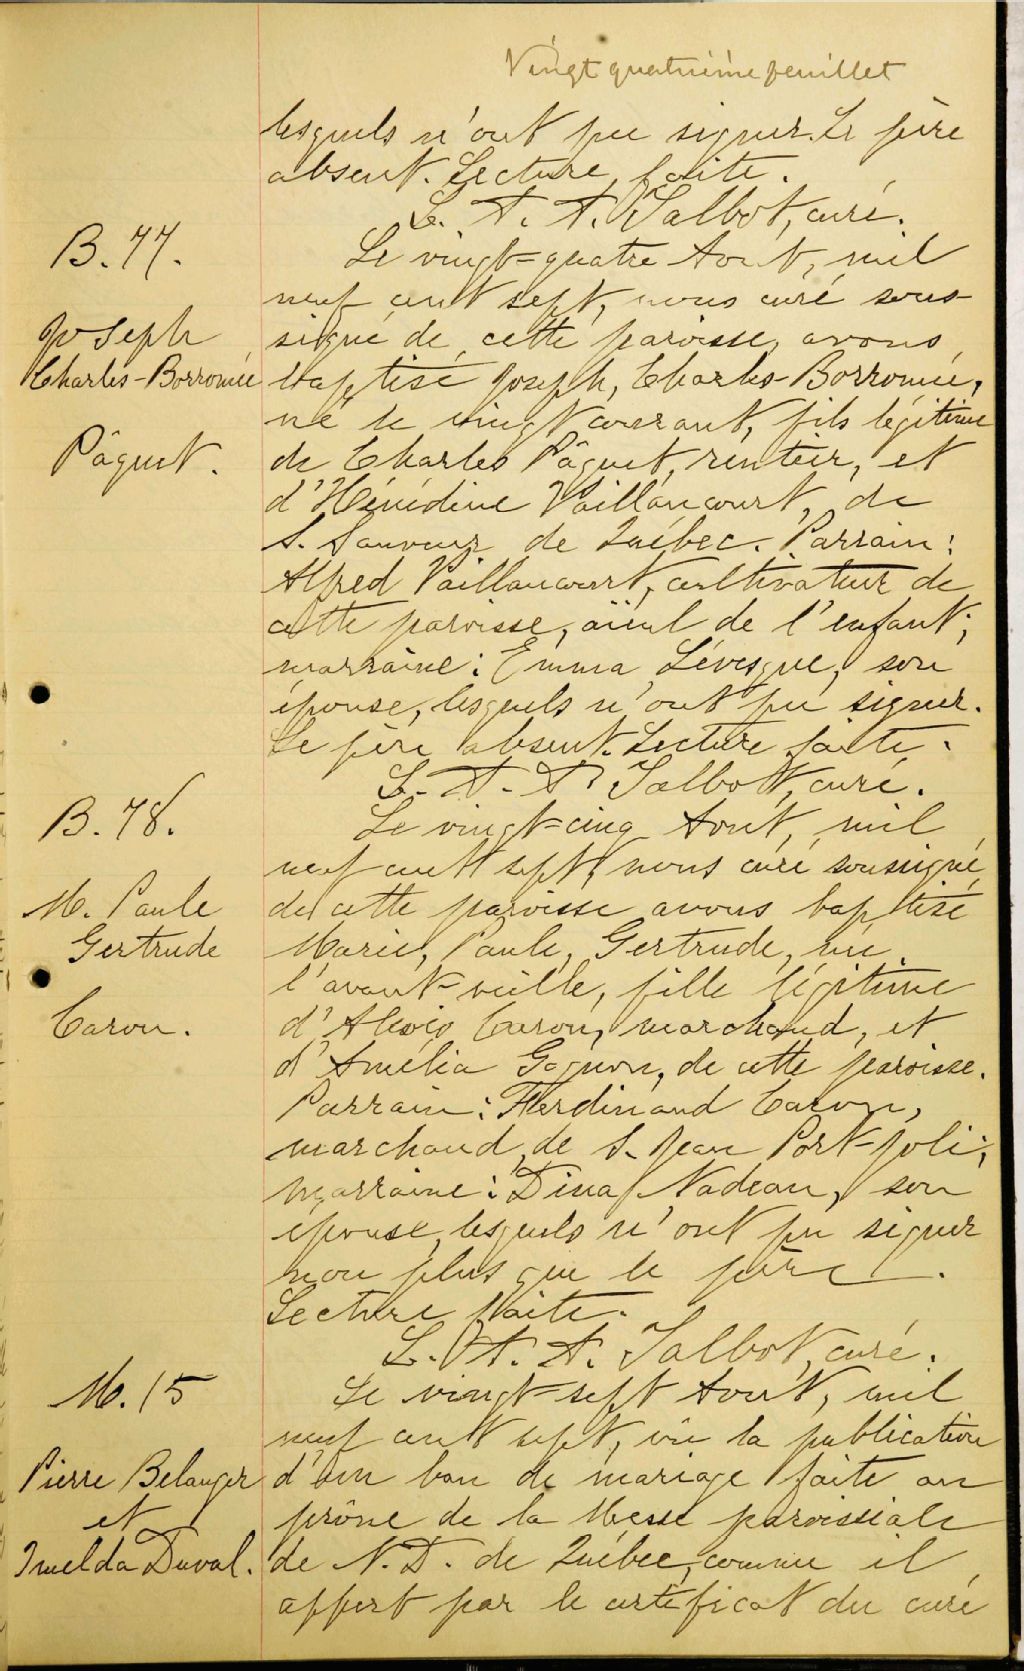 Vingt quatrième feuillet
lesquels n'ont pu signer. Le père
absent. Lecture faite.
L. A. A. Talbot, curé.
B. 77.
Joseph
Charles-Borromée
Pâquet.
Le vingt-quatre Août, mil
neuf cent sept, nous curé sous-
signé de cette paroisse, avons
baptisé Joseph, Charles-Borromée,
né le vingt courant, fils légitime
de Charles Pâquet, rentier, et
d'Hénédine Vaillancourt, de
S. Sauveur de Québec. Parrain:
Alfred Vaillancourt, cultivateur de
cette paroisse, aïeul de l'enfant;
marraine: Emma Lévesque, son
épouse, lesquels n'ont pu signer.
Le père absent. Lecture faite.
L. A. A. Talbot, curé.
B. 78.
M. Paule
Gertrude
Caron.
Le vingt-cinq Août, mil
neuf cent sept, nous curé soussigné
de cette paroisse avons baptisé
Marie, Paule, Gertrude, née
l'avant-veille, fille légitime
d'Aloïs Caron, marchand, et
d'Amélia Gagnon, de cette paroisse.
Parrain: Ferdinand Caron,
marchand, de S. Jean Port-Joli;
marraine: Dina Nadeau, son
épouse, lesquels n'ont pu signer
non plus que le père.
Lecture faite.
L. A. A. Talbot, curé.
M. 15
Pierre Belanger
et
Imelda Duval.
Le vingt-sept Août, mil
neuf cent sept, vu la publication
d'un ban de mariage faite au
prône de la Messe paroissiale
de N. D. de Québec, comme il
appert par le certificat du curé